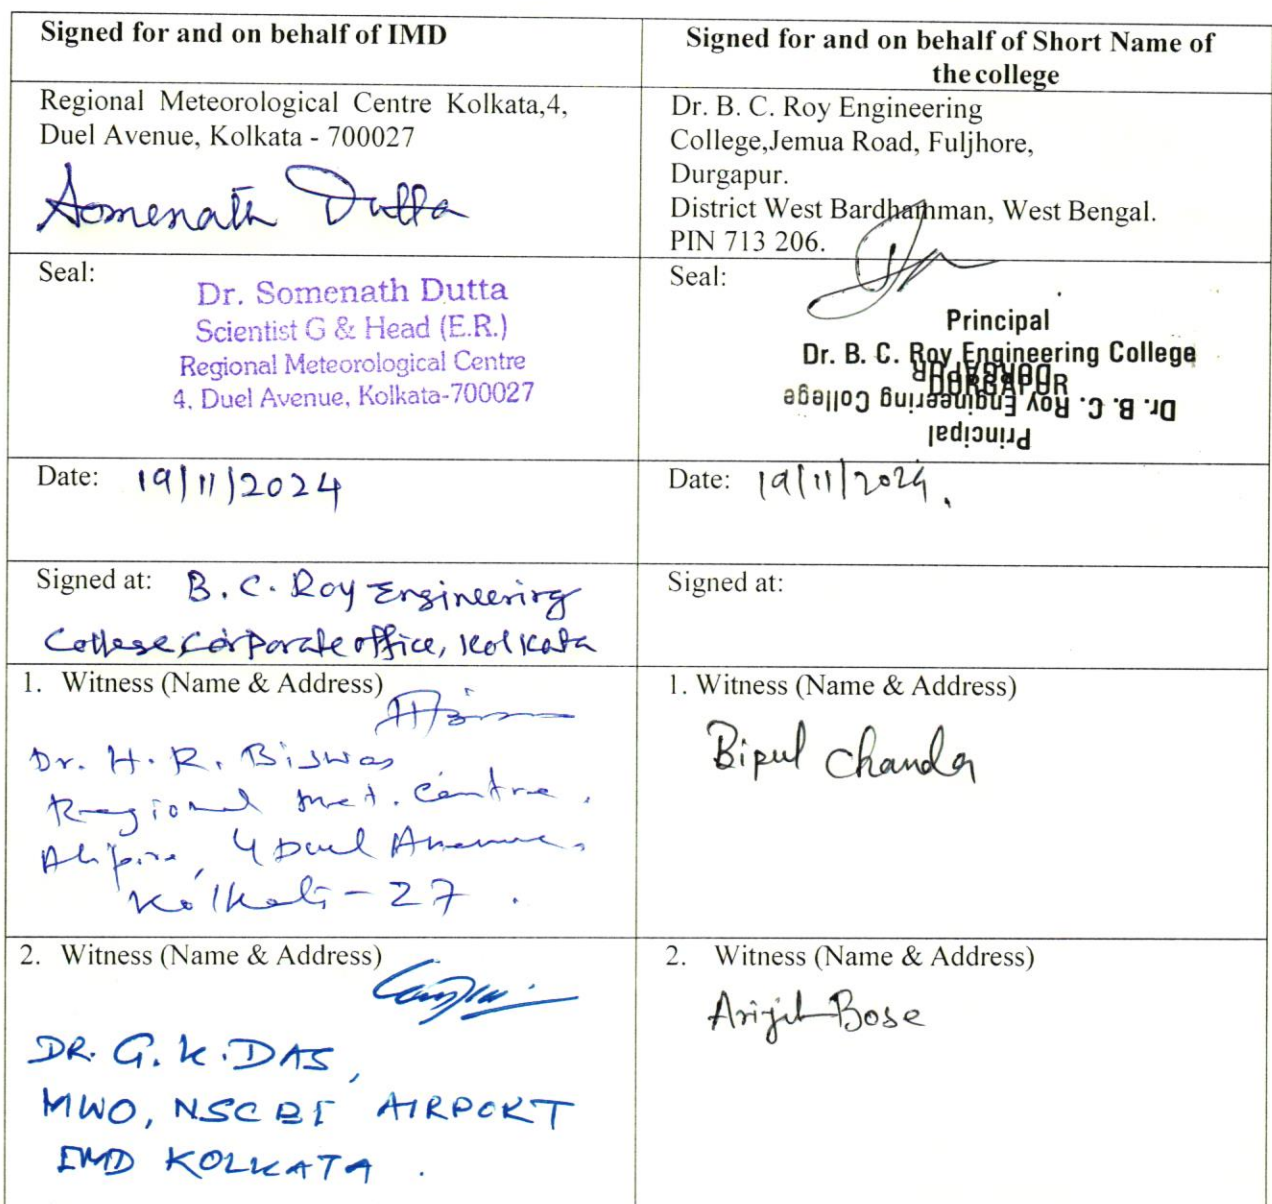 Signed for and on behalf of IMD
Signed for and on behalf of Short Name of
the college
Regional Meteorological Centre Kolkata,4,
Duel Avenue, Kolkata - 700027
Somenath Dutta
Dr. B. C. Roy Engineering
College,Jemua Road, Fuljhore,
Durgapur.
District West Bardhamman, West Bengal.
PIN 713 206.
Seal:
Dr. Somenath Dutta
Scientist G & Head (E.R.)
Regional Meteorological Centre
4, Duel Avenue, Kolkata-700027
Seal:
Principal
Dr. B. C. Roy Engineering College
DURGAPUR
DURGAPUR
Dr. B. C. Roy Engineering College
Principal
Date: 19/11/2024
Date: 19/11/2024.
Signed at: B. C. Roy Engineering
College, Corporate office, Kolkata
Signed at:
1. Witness (Name & Address)
Dr. H. R. Biswas
Regional Met. Centre,
Alipore, 4 Duel Avenue,
Kolkata - 27.
1. Witness (Name & Address)
Bipul Chanda
2. Witness (Name & Address)
DR. G. K. DAS,
MWO, NSCBI AIRPORT
IMD KOLKATA.
2. Witness (Name & Address)
Arijit Bose